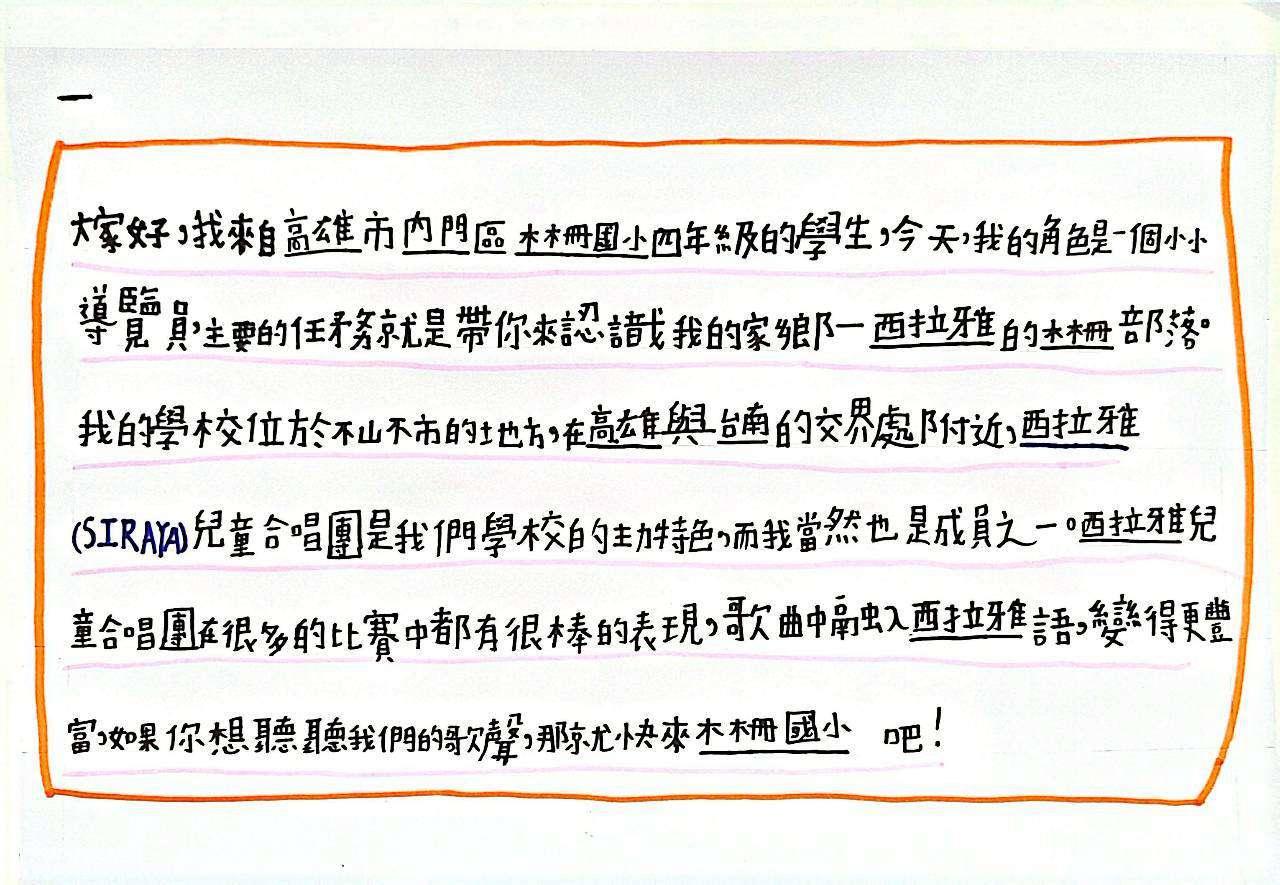 一
大家好,我來自高雄市內門區木柵國小四年級的學生,今天,我的角色是一個小小
導覽員,主要的任務就是帶你來認識我的家鄉—西拉雅的木柵部落。
我的學校位於不山不市的地方,在高雄與台南的交界處附近,西拉雅
(SIRAYA)兒童合唱團是我們學校的主力特色,而我當然也是成員之一。西拉雅兒
童合唱團在很多的比賽中都有很棒的表現,歌曲中融入西拉雅語,變得更豐
富,如果你想聽聽我們的歌聲,那就快來木柵國小吧!